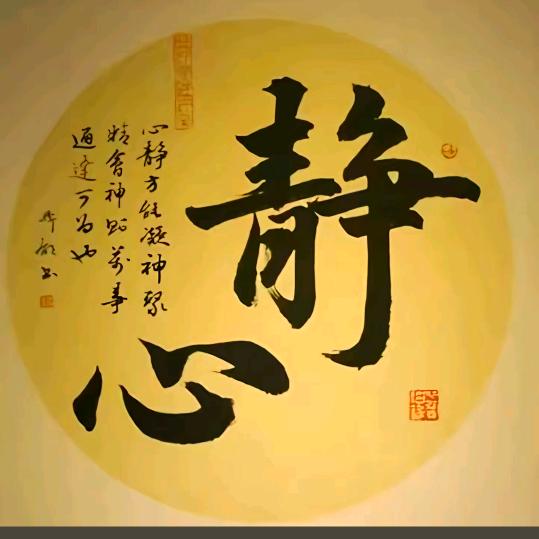 静心
心静方能凝神聚
精会神则万事
通达可为也